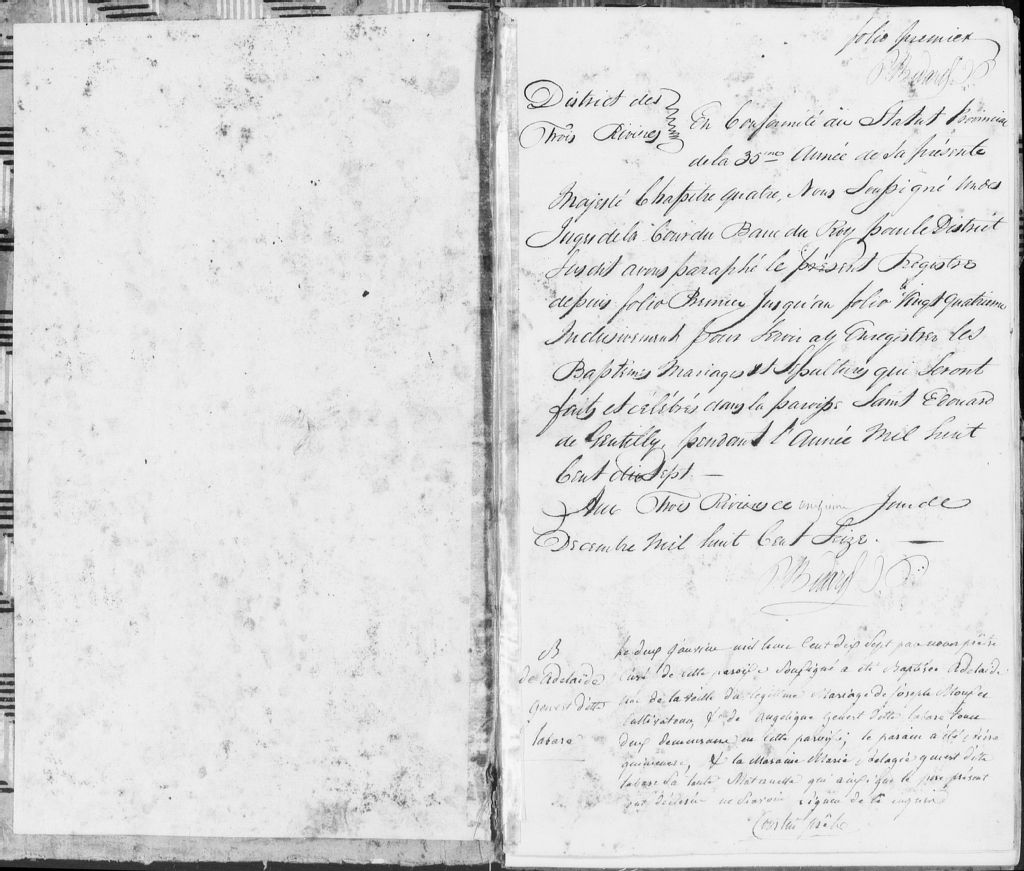 folio premier
P Bedard J P
District des
Trois Rivières
En Conformité au Statut Provincial
de la 35eme Année de Sa présente
Majesté Chapitre quatre, Nous Soussigné un des
Juges de la Cour du Banc du Roy pour le District
Susdit avons paraphé le présent Registre
depuis folio Premier Jusqu'au folio Vingt quatrieme
Inclusivement pour Servir a y Enregistrer les
Baptêmes Mariages et Sepultures qui Seront
faits et célébrés dans la paroisse Saint Edouard
de Gentilly, pendant l'Année Mil huit
Cent dix Sept —
Aux Trois Rivieres ce onzieme Jour de
Decembre Mil huit Cent Seize. —
P Bedard J P
B
de Adelaide
labare
Le deux Janvier mil huit Cent dix Sept par nous prêtre
Curé de cette paroisse Soussigné a été Baptisée Adelaide
née de la veille du legitime Mariage de Joseph
Cultivateur & de Angelique labare tous
deux demeurans en cette paroisse; le parain a été
& la Maraine Marie Pelagie
labare Sa tante Maternelle qui ainsi que le pere présent
ont déclarés ne Savoir Signer de ce enquis
prêtre